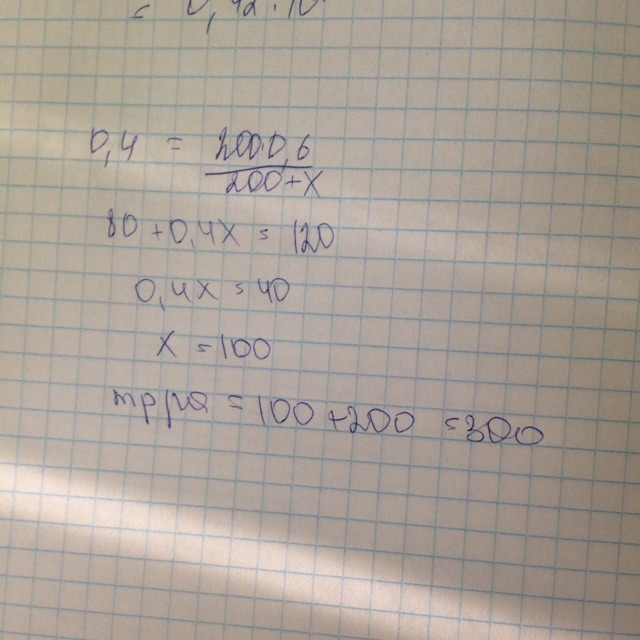 0,4 = 200·0,6 / 200+x
80 + 0,4x = 120
0,4x = 40
x = 100
mр-ра = 100 + 200 = 300